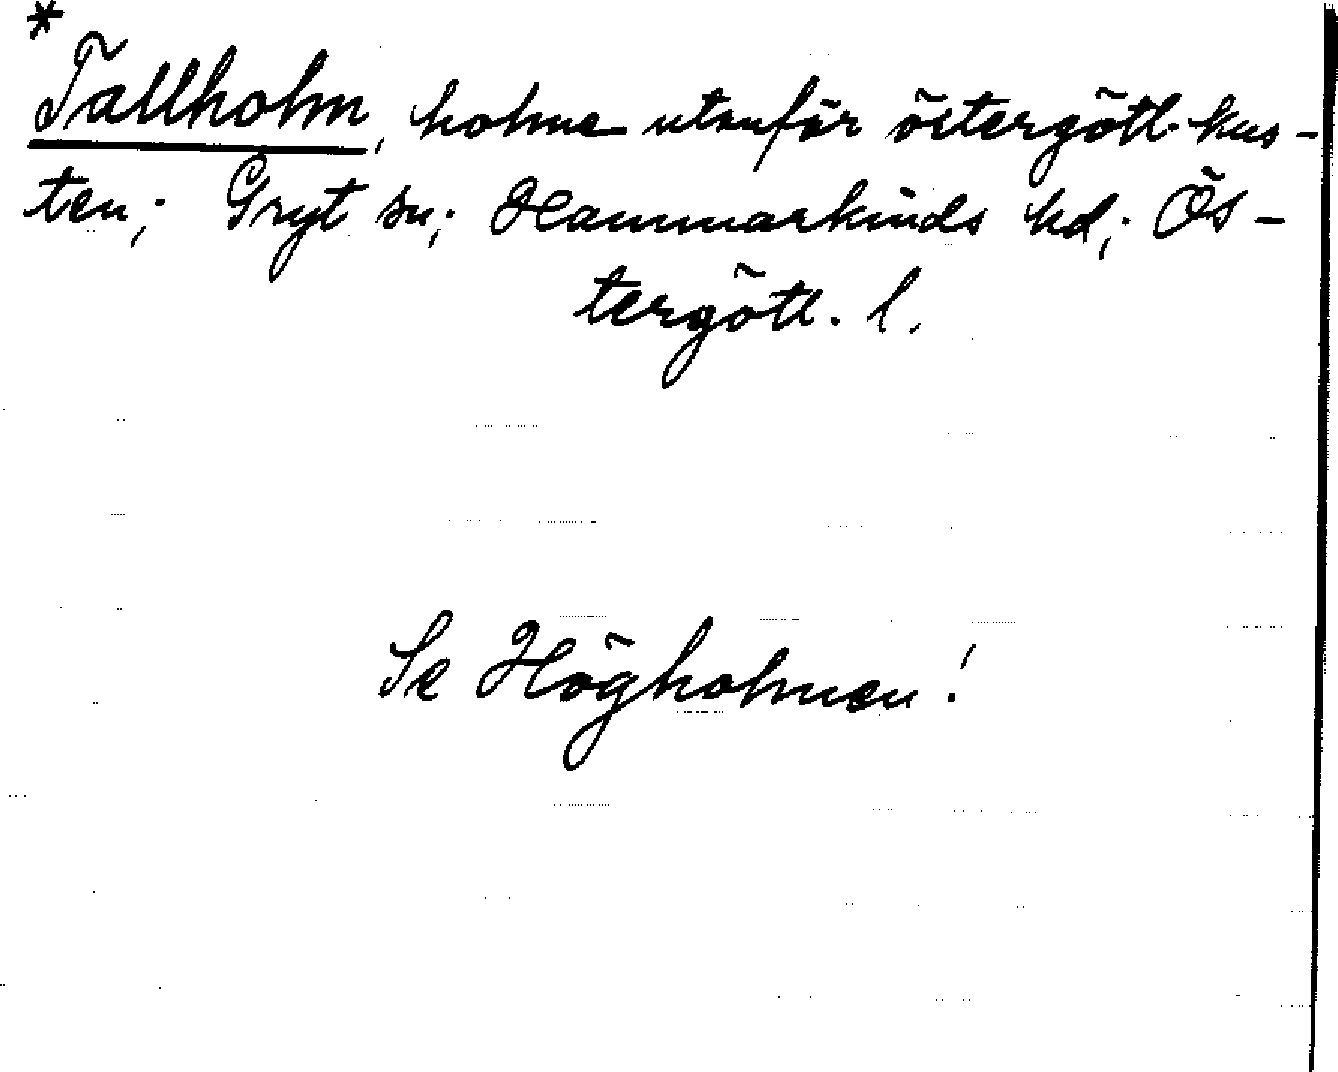 *
Tallholm, holme utanför östergötl. kus-
ten; Gryt sn; Hammarkinds hd; Ös-
tergötl. l.
Se Högholmen!